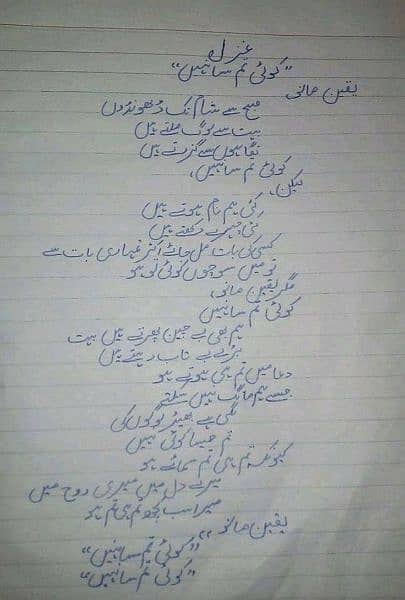 غزل
"کوئی تم سا نہیں"
یقین مانو
صبح سے شام تک ڈھونڈوں
بہت سے لوگ ملتے ہیں
نگاہوں سے گزرتے ہیں
کوئی تم سا نہیں،
لیکن،
کئی ہم نام ہوتے ہیں
کئی چہرے دکھتے ہیں
کسی کی بات مل جائے اگر تمہاری بات سے
تو میں سوچوں کوئی تو ہو
مگر یقین مانو،
کوئی تم سا نہیں
ہم بھی بے چین پھرتے ہیں بہت
بڑے بے تاب رہتے ہیں
دعا میں تم ہی ہوتے ہو
جسے ہم مانگ نہیں سکتے
لگی ہے بھیڑ لوگوں کی
تم جیسا کوئی نہیں
کیونکہ تم ہی تم سمائے ہو
میرے دل میں میری روح میں
میرا سب کچھ تم ہی تم ہو
یقین مانو "
"کوئی تم سا نہیں"
"کوئی تم سا نہیں"